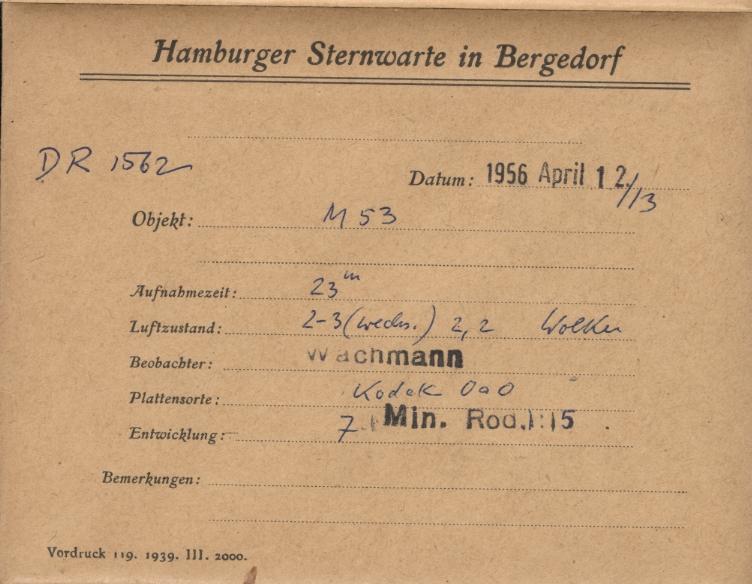 Hamburger Sternwarte in Bergedorf
DR 1562
Datum: 1956 April 12./13
Objekt: M 53
Aufnahmezeit: 23m
Luftzustand: 2-3 (wechs.) 2,2 Wolken
Beobachter: Wachmann
Plattensorte: Kodak OaO
Entwicklung: 7 Min. Rod. 1:15
Bemerkungen:
Vordruck 119. 1939. III. 2000.